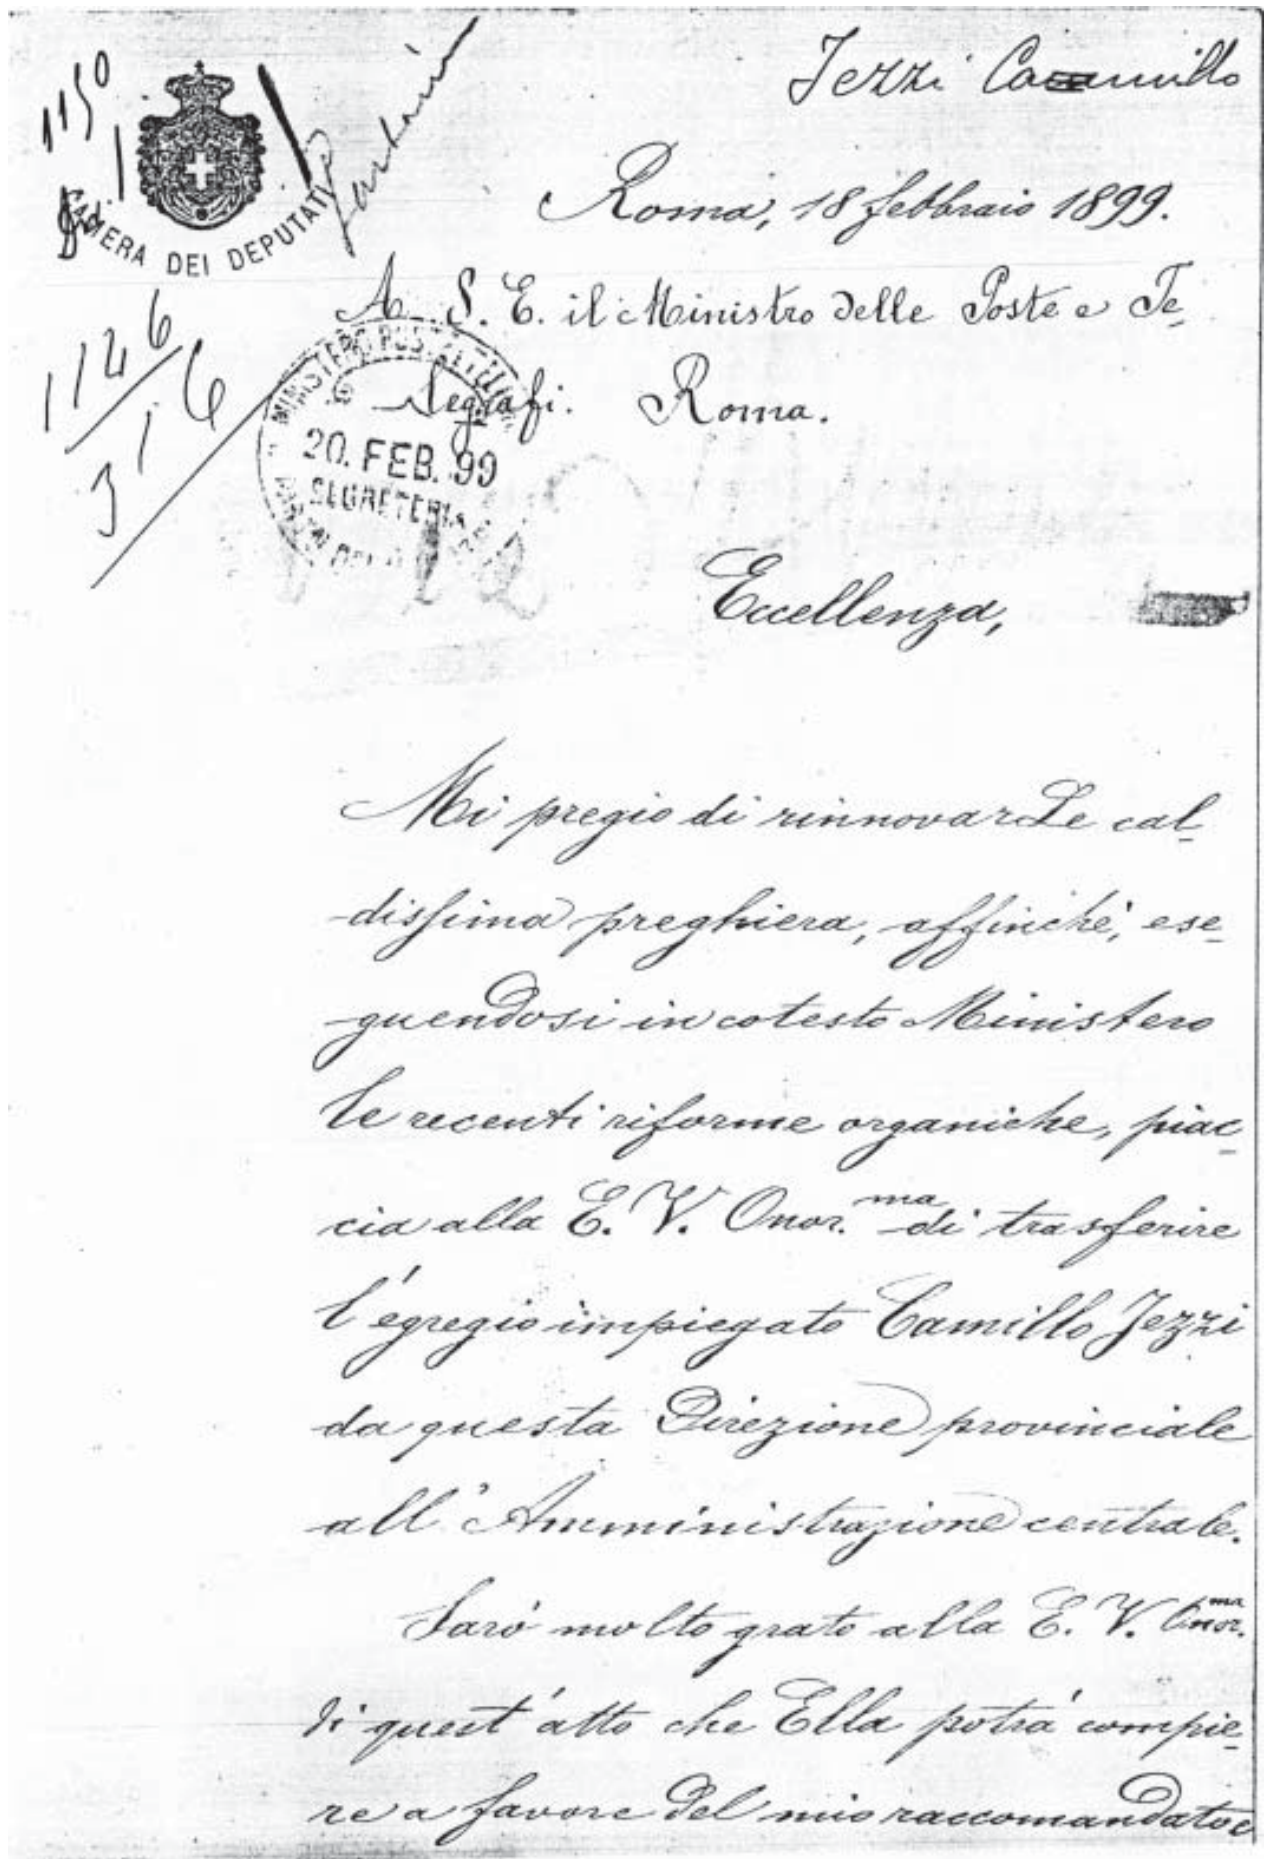 Jezzi Camillo
1150
CAMERA DEI DEPUTATI
Roma, 18 febbraio 1899.
A S. E. il Ministro delle Poste e Te-
legrafi. Roma.
1126
316
20. FEB. 99
SEGRETERIA
Eccellenza,
Mi pregio di rinnovarLe cal-
dissima preghiera, affinchè, ese-
guendosi in cotesto Ministero
le recenti riforme organiche, piac-
cia alla E. V. Onor.ma di trasferire
l'egregio impiegato Camillo Jezzi
da questa Direzione provinciale
all'Amministrazione centrale.
Sarò molto grato alla E. V. Onor.ma
di quest'atto che Ella potrà compie-
re a favore del mio raccomandato e